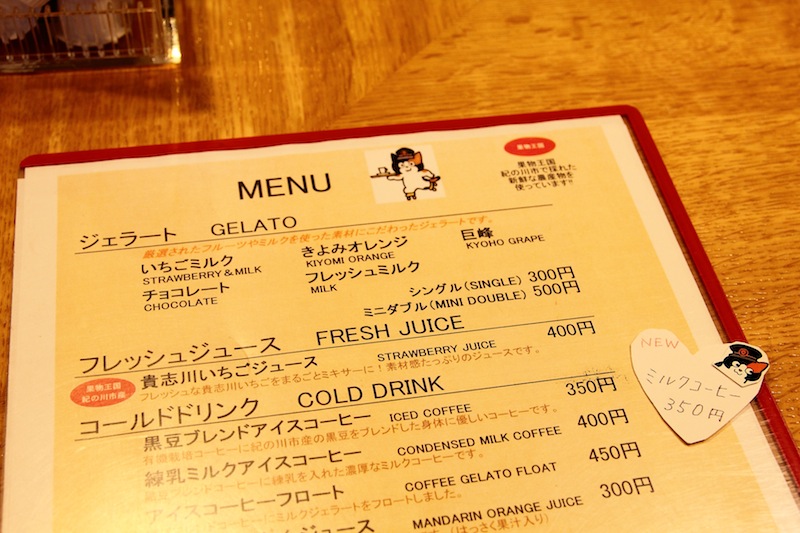 MENU
果物王国
果物王国
紀の川市で採れた
新鮮な農産物を
使っています!!
ジェラート GELATO
厳選されたフルーツやミルクを使った素材にこだわったジェラートです。
いちごミルク きよみオレンジ 巨峰
STRAWBERRY&MILK KIYOMI ORANGE KYOHO GRAPE
チョコレート フレッシュミルク
CHOCOLATE MILK
シングル(SINGLE) 300円
ミニダブル(MINI DOUBLE) 500円
フレッシュジュース FRESH JUICE
果物王国
紀の川市産
貴志川いちごジュース STRAWBERRY JUICE 400円
フレッシュな貴志川いちごをまるごとミキサーに!素材感たっぷりのジュースです。
コールドドリンク COLD DRINK
黒豆ブレンドアイスコーヒー ICED COFFEE 350円
有機栽培コーヒーに紀の川市産の黒豆をブレンドした身体に優しいコーヒーです。
練乳ミルクアイスコーヒー CONDENSED MILK COFFEE 400円
ブレンドコーヒーに練乳を入れた濃厚なミルクコーヒーです。
アイスコーヒーフロート COFFEE GELATO FLOAT 450円
コーヒーにミルクジェラートをフロートしました。
ジュース MANDARIN ORANGE JUICE 300円
(はっさく果汁入り)
NEW
ミルクコーヒー
350円